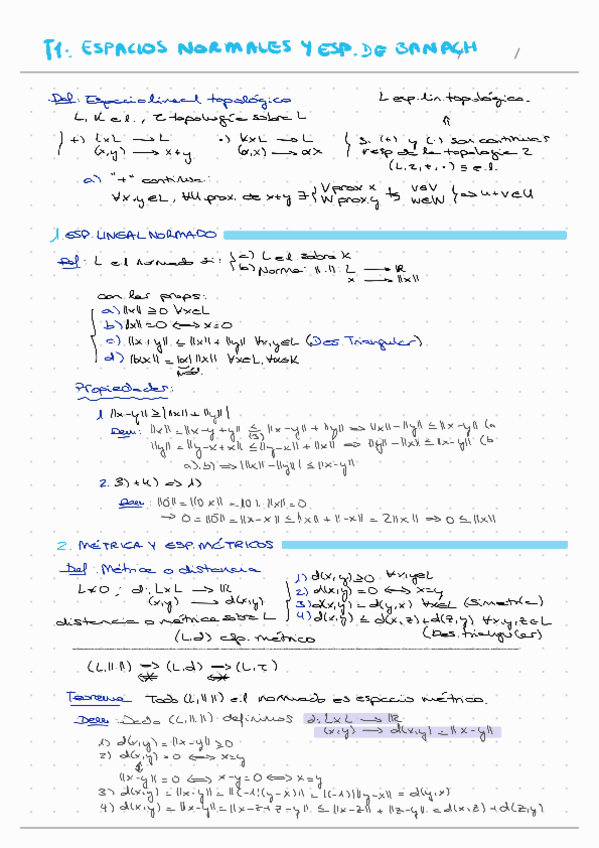 T1: ESPACIOS NORMALES Y ESP. DE BANACH
Def: Espacio lineal topológico
L, K e.l., τ topología sobre L
+) L×L → L
(x,y) → x+y
·) K×L → L
(α,x) → αx
L esp. lin. topológico.
⇑
Si (+) y (·) son continuas
resp de la topologia τ
(L, τ, +, ·) ≡ e.l.
a) "+" continua:
∀x,y∈L, ∀U prox. de x+y ∃ { V prox x
W prox. y } tq v∈V
w∈W } ⇒ u+v∈U
1. ESP. LINEAL NORMADO
Def: L e.l normado si: a) L e.l sobre K
b) Norma: ||·||: L → ℝ
x → ||x||
con las props:
a) ||x|| ≥ 0 ∀x∈L
b) ||x|| = 0 ⟺ x=0
c) ||x+y|| ≤ ||x|| + ||y|| ∀x,y∈L (Des. Triangular)
d) ||αx|| = |α| ||x|| ∀x∈L, ∀α∈K
Propiedades:
1. ||x-y|| ≥ | ||x|| + ||y|| |
Dem: ||x|| = ||x-y+y|| ≤ ||x-y|| + ||y|| ⇒ ||x|| - ||y|| ≤ ||x-y|| (a
(3)
||y|| = ||y-x+x|| ≤ ||y-x|| + ||x|| ⇒ ||y|| - ||x|| ≤ ||x-y|| (b
a), b) ⇒ | ||x|| - ||y|| | ≤ ||x-y||
2. 3) + 4) ⇒ 1)
Dem: ||0|| = ||0·x|| = |0|·||x|| = 0
→ 0 = ||0|| = ||x-x|| ≤ ||x|| + ||-x|| = 2||x|| ⇒ 0 ≤ ||x||
2. MÉTRICA Y ESP. MÉTRICOS
Def: Métrica o distancia
L≠0; d: L×L → ℝ
(x,y) → d(x,y)
distancia o métrica sobre L
1) d(x,y) ≥ 0 ∀x,y∈L
2) d(x,y) = 0 ⟺ x=y
3) d(x,y) = d(y,x) ∀x∈L (Simetría)
4) d(x,y) ≤ d(x,z) + d(z,y) ∀x,y,z∈L
(Des. triangular)
(L,d) esp. métrico
(L, ||·||) → (L,d) → (L,τ)
Teorema Todo (L, ||·||) e.l normado es espacio métrico.
Dem: Dado (L, ||·||) definimos d: L×L → ℝ
(x,y) → d(x,y) = ||x-y||
1) d(x,y) = ||x-y|| ≥ 0
2) d(x,y) = 0 ⟺ x=y
⇕
||x-y|| = 0 ⟺ x-y=0 ⟺ x=y
3) d(x,y) = ||x-y|| = ||(-1)·(y-x)|| = |(-1)| ||y-x|| = d(y,x)
4) d(x,y) = ||x-y|| = ||x-z+z-y|| ≤ ||x-z|| + ||z-y|| = d(x,z) + d(z,y)